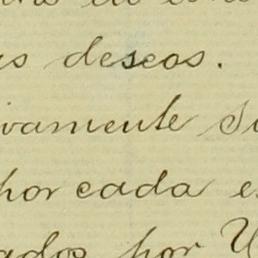 s deseos.
vamente su
por cada e
ados por U